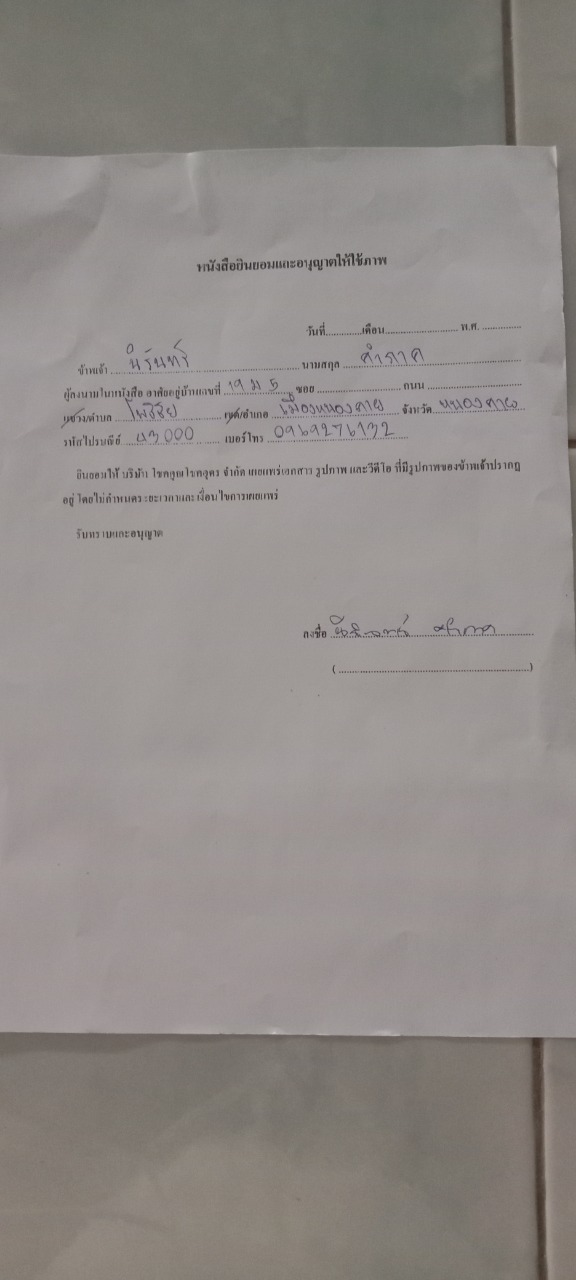 หนังสือยินยอมและอนุญาตให้ใช้ภาพ
วันที่.............เดือน.......................... พ.ศ. ..............
ข้าพเจ้า นิรันทร์ นามสกุล คำภาค
ผู้ลงนามในหนังสือ อาศัยอยู่บ้านเลขที่ 19 ม 5 ซอย ............................ ถนน ................................
แขวง/ตำบล โพธิ์ชัย เขต/อำเภอ เมืองหนองคาย จังหวัด หนองคาย
รหัสไปรษณีย์ 43000 เบอร์โทร 0969276132
ยินยอมให้ บริษัท โชคคูณโชคอุดร จำกัด เผยแพร่เอกสาร รูปภาพ และวีดีโอ ที่มีรูปภาพของข้าพเจ้าปรากฏ
อยู่ โดยไม่กำหนดระยะเวลาและเงื่อนไขการเผยแพร่
รับทราบและอนุญาต
ลงชื่อ
(..............................................................)